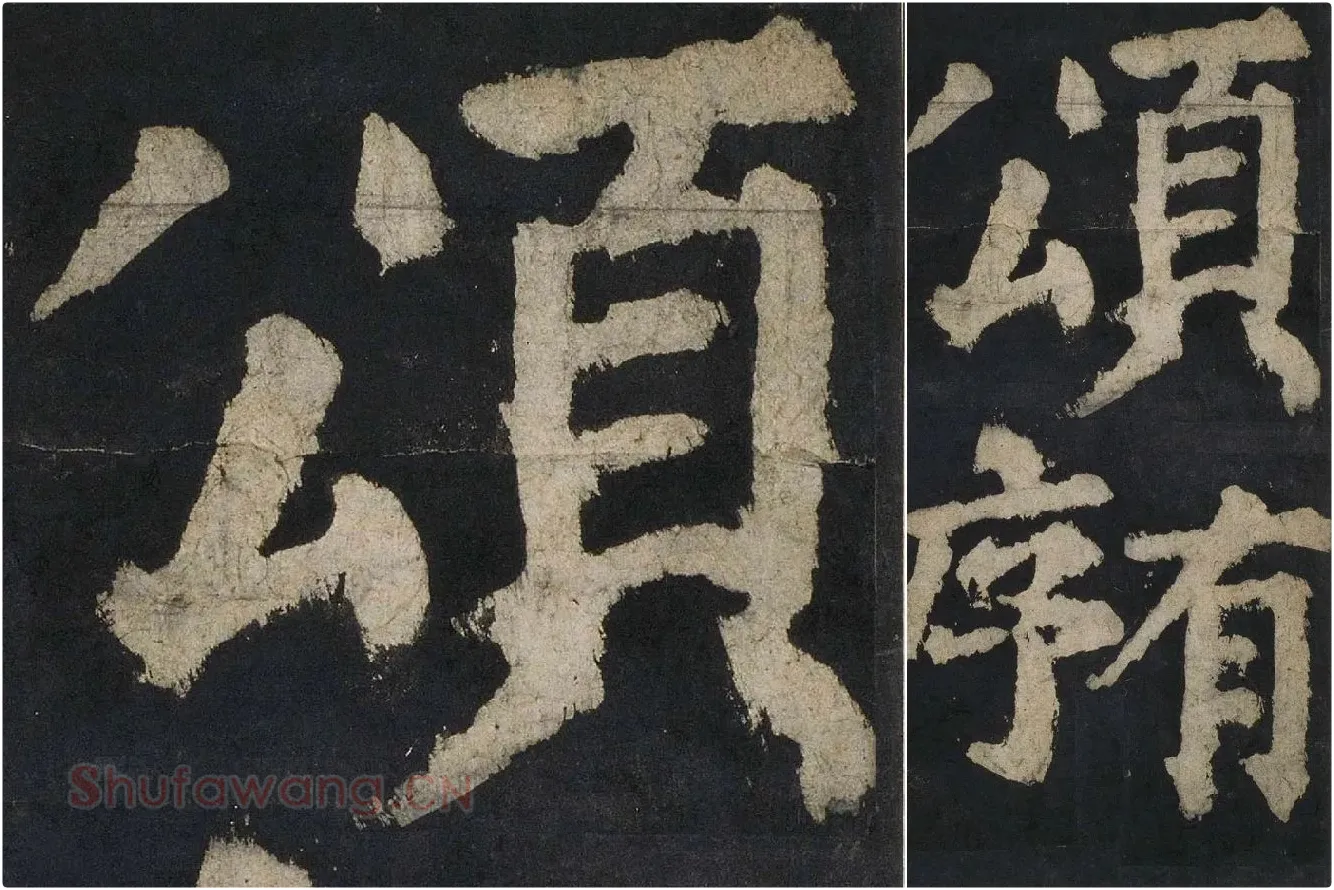 頌
Shufawang.CN
頌
有序